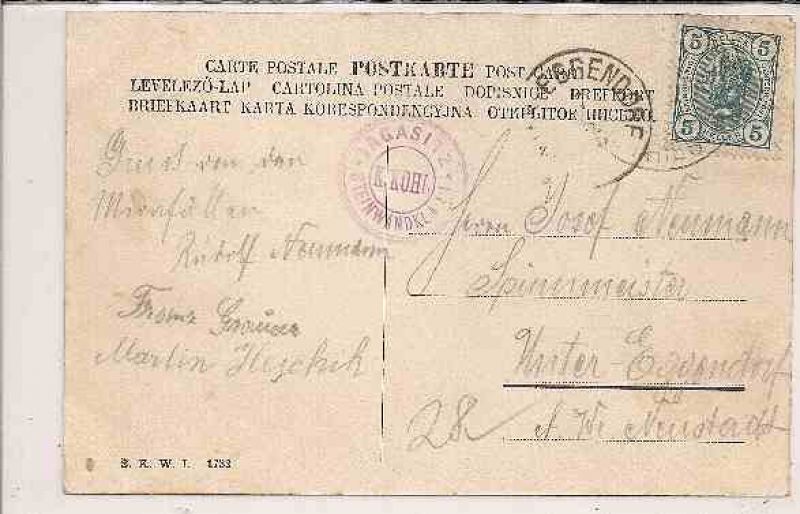 CARTE POSTALE POSTKARTE POST CARD
LEVELEZŐ-LAP CARTOLINA POSTALE DOPISNICE BREFKORT
BRIEFKAART KARTA KORESPONDENCYJNA ОТКРЫТОЕ ПИСЬМО
5 5
5 5
EGGENDORF
JAGASITZ
K. KOHL
STEINWANDKLAMM
Gruss von den
Mirafällen
Rudolf Neumann
Franz
Martin
Herrn Josef Neumann
Spinnmeister
Unter-Eggendorf
28 A W. Neustadt
S. K. W. I. 1733